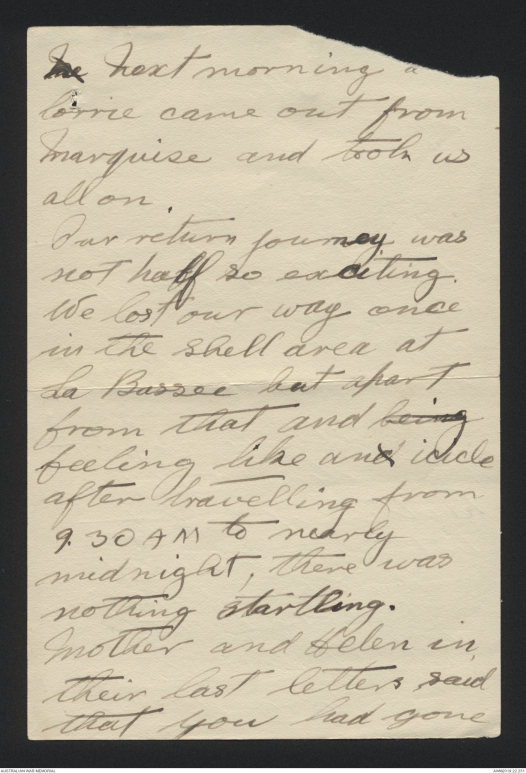 Next morning a
lorrie came out from
Marquise and took us
all on.
Our return journey was
not half so exciting.
We lost our way once
in the shell area at
La Bassee but apart
from that and being
feeling like an icicle
after travelling from
9.30 AM to nearly
midnight, there was
nothing startling.
Mother and Helen in
their last letters said
that you had gone
AUSTRALIAN WAR MEMORIAL